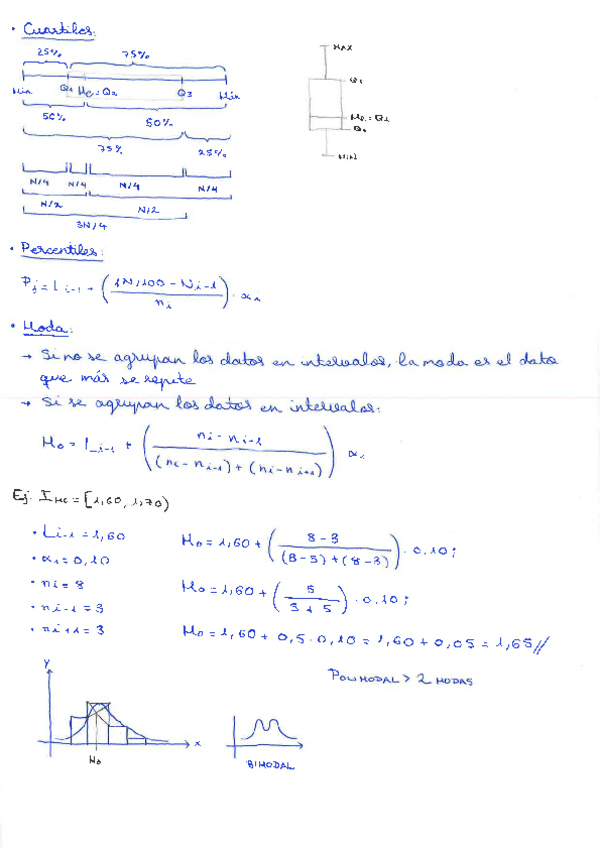 • Cuartiles:
25% 75%
Min. Q1 Me = Q2 Q3 Máx
50% 50%
75% 25%
N/4 N/4 N/4 N/4
N/2 N/2
3N/4
MAX
MIN
• Percentiles:
Pj = Li-1 + (jN/100 - Ni-1 / ni) · αi
• Moda:
→ Si no se agrupan los datos en intervalos, la moda es el dato
que más se repite
→ Si se agrupan los datos en intervalos:
Mo = Li-1 + (ni - ni-1 / (ni - ni-1) + (ni - ni+1)) αi
Ej: = [1,60, 1,70)
• Li-1 = 1,60
• αi = 0,10
• ni = 8
• ni-1 = 3
• ni+1 = 3
Mo = 1,60 + (8-3 / (8-3)+(8-3)) · 0,10;
Mo = 1,60 + (5 / 5+5) · 0,10;
Mo = 1,60 + 0,5 · 0,10 = 1,60 + 0,05 = 1,65//
POLIMODAL > 2 MODAS
Y
x
Mo
BIMODAL